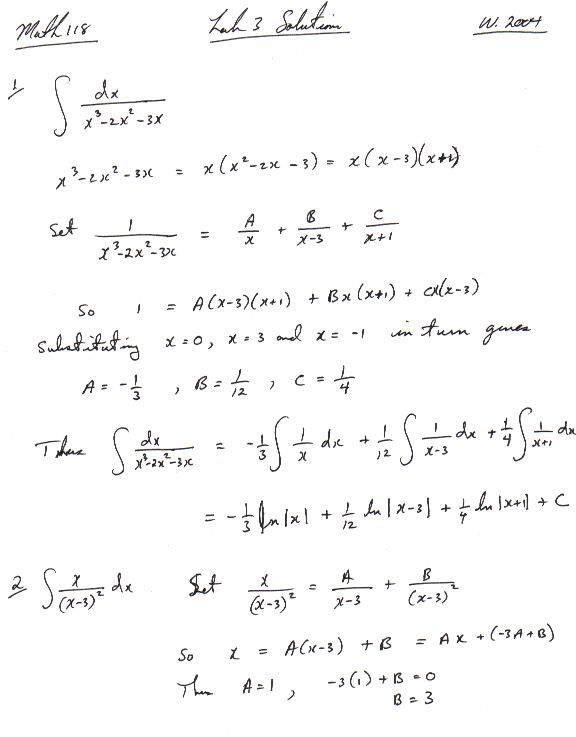 Math 118 Lab 3 Solution W. 2004
1 ∫ dx / (x³-2x²-3x)
x³-2x²-3x = x(x²-2x-3) = x(x-3)(x+1)
Set 1/(x³-2x²-3x) = A/x + B/(x-3) + C/(x+1)
So 1 = A(x-3)(x+1) + Bx(x+1) + Cx(x-3)
substituting x=0, x=3 and x=-1 in turn gives
A = -1/3 , B = 1/12 , C = 1/4
Thus ∫ dx/(x³-2x²-3x) = -1/3 ∫ 1/x dx + 1/12 ∫ 1/(x-3) dx + 1/4 ∫ 1/(x+1) dx
= -1/3 ln|x| + 1/12 ln|x-3| + 1/4 ln|x+1| + C
2 ∫ x/(x-3)² dx Set x/(x-3)² = A/(x-3) + B/(x-3)²
So x = A(x-3) + B = Ax + (-3A+B)
Then A=1 , -3(1)+B=0
B=3